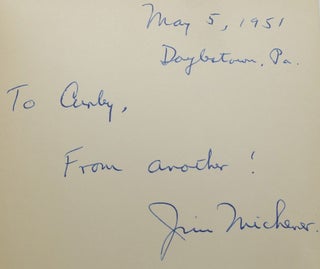 May 5, 1951
Doylestown, Pa.
To Curly,
From another!
Jim Michener.